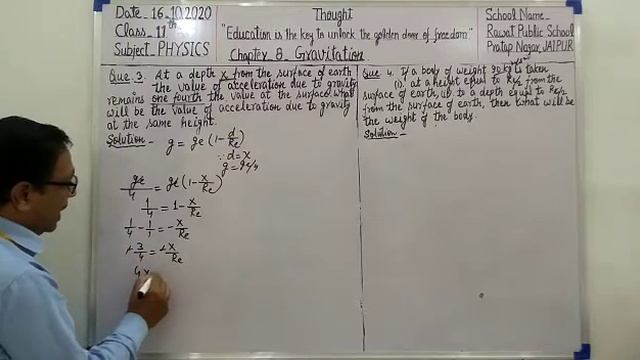 Date_ 16-10.2020
Class_ 11th
Subject_ PHYSICS
Thought
"Education is the key to unlock the golden door of freedom"
Chapter 8. Gravitation
School Name_
Rawat Public School
Pratap Nagar, JAIPUR
Que. 3. At a depth x from the surface of earth
the value of acceleration due to gravity
remains one fourth the value at the surface what
will be the value of acceleration due to gravity
at the same height.
Solution - g = ge (1 - d/Re)
∵ d = x
g = ge/4
ge/4 = ge (1 - x/Re)
1/4 = 1 - x/Re
1/4 - 1/1 = -x/Re
-3/4 = -x/Re
4x
Que 4. If a body of weight 90 kg is taken
(i). at a height equal to Re/2 from the
surface of earth (ii) to a depth equal to Re/2
from the surface of earth, then what will be
the weight of the body.
Solution -